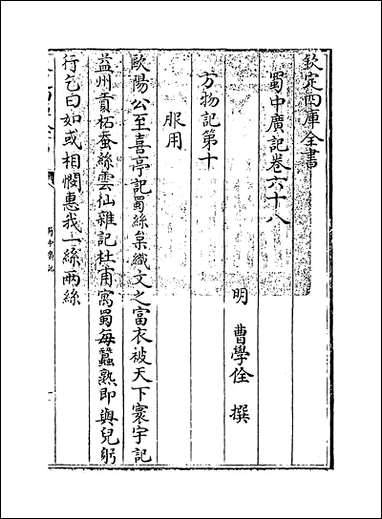 欽定四庫全書
蜀中廣記卷六十八
明 曹學佺 撰
方物記第十
服用
歐陽公至喜亭記蜀絲枲織文之富衣被天下寰宇記
益州貢柘蚕絲雲仙雜記杜甫寓蜀每蠶熟即與兒躬
行乞曰如或相憫惠我一絲兩絲